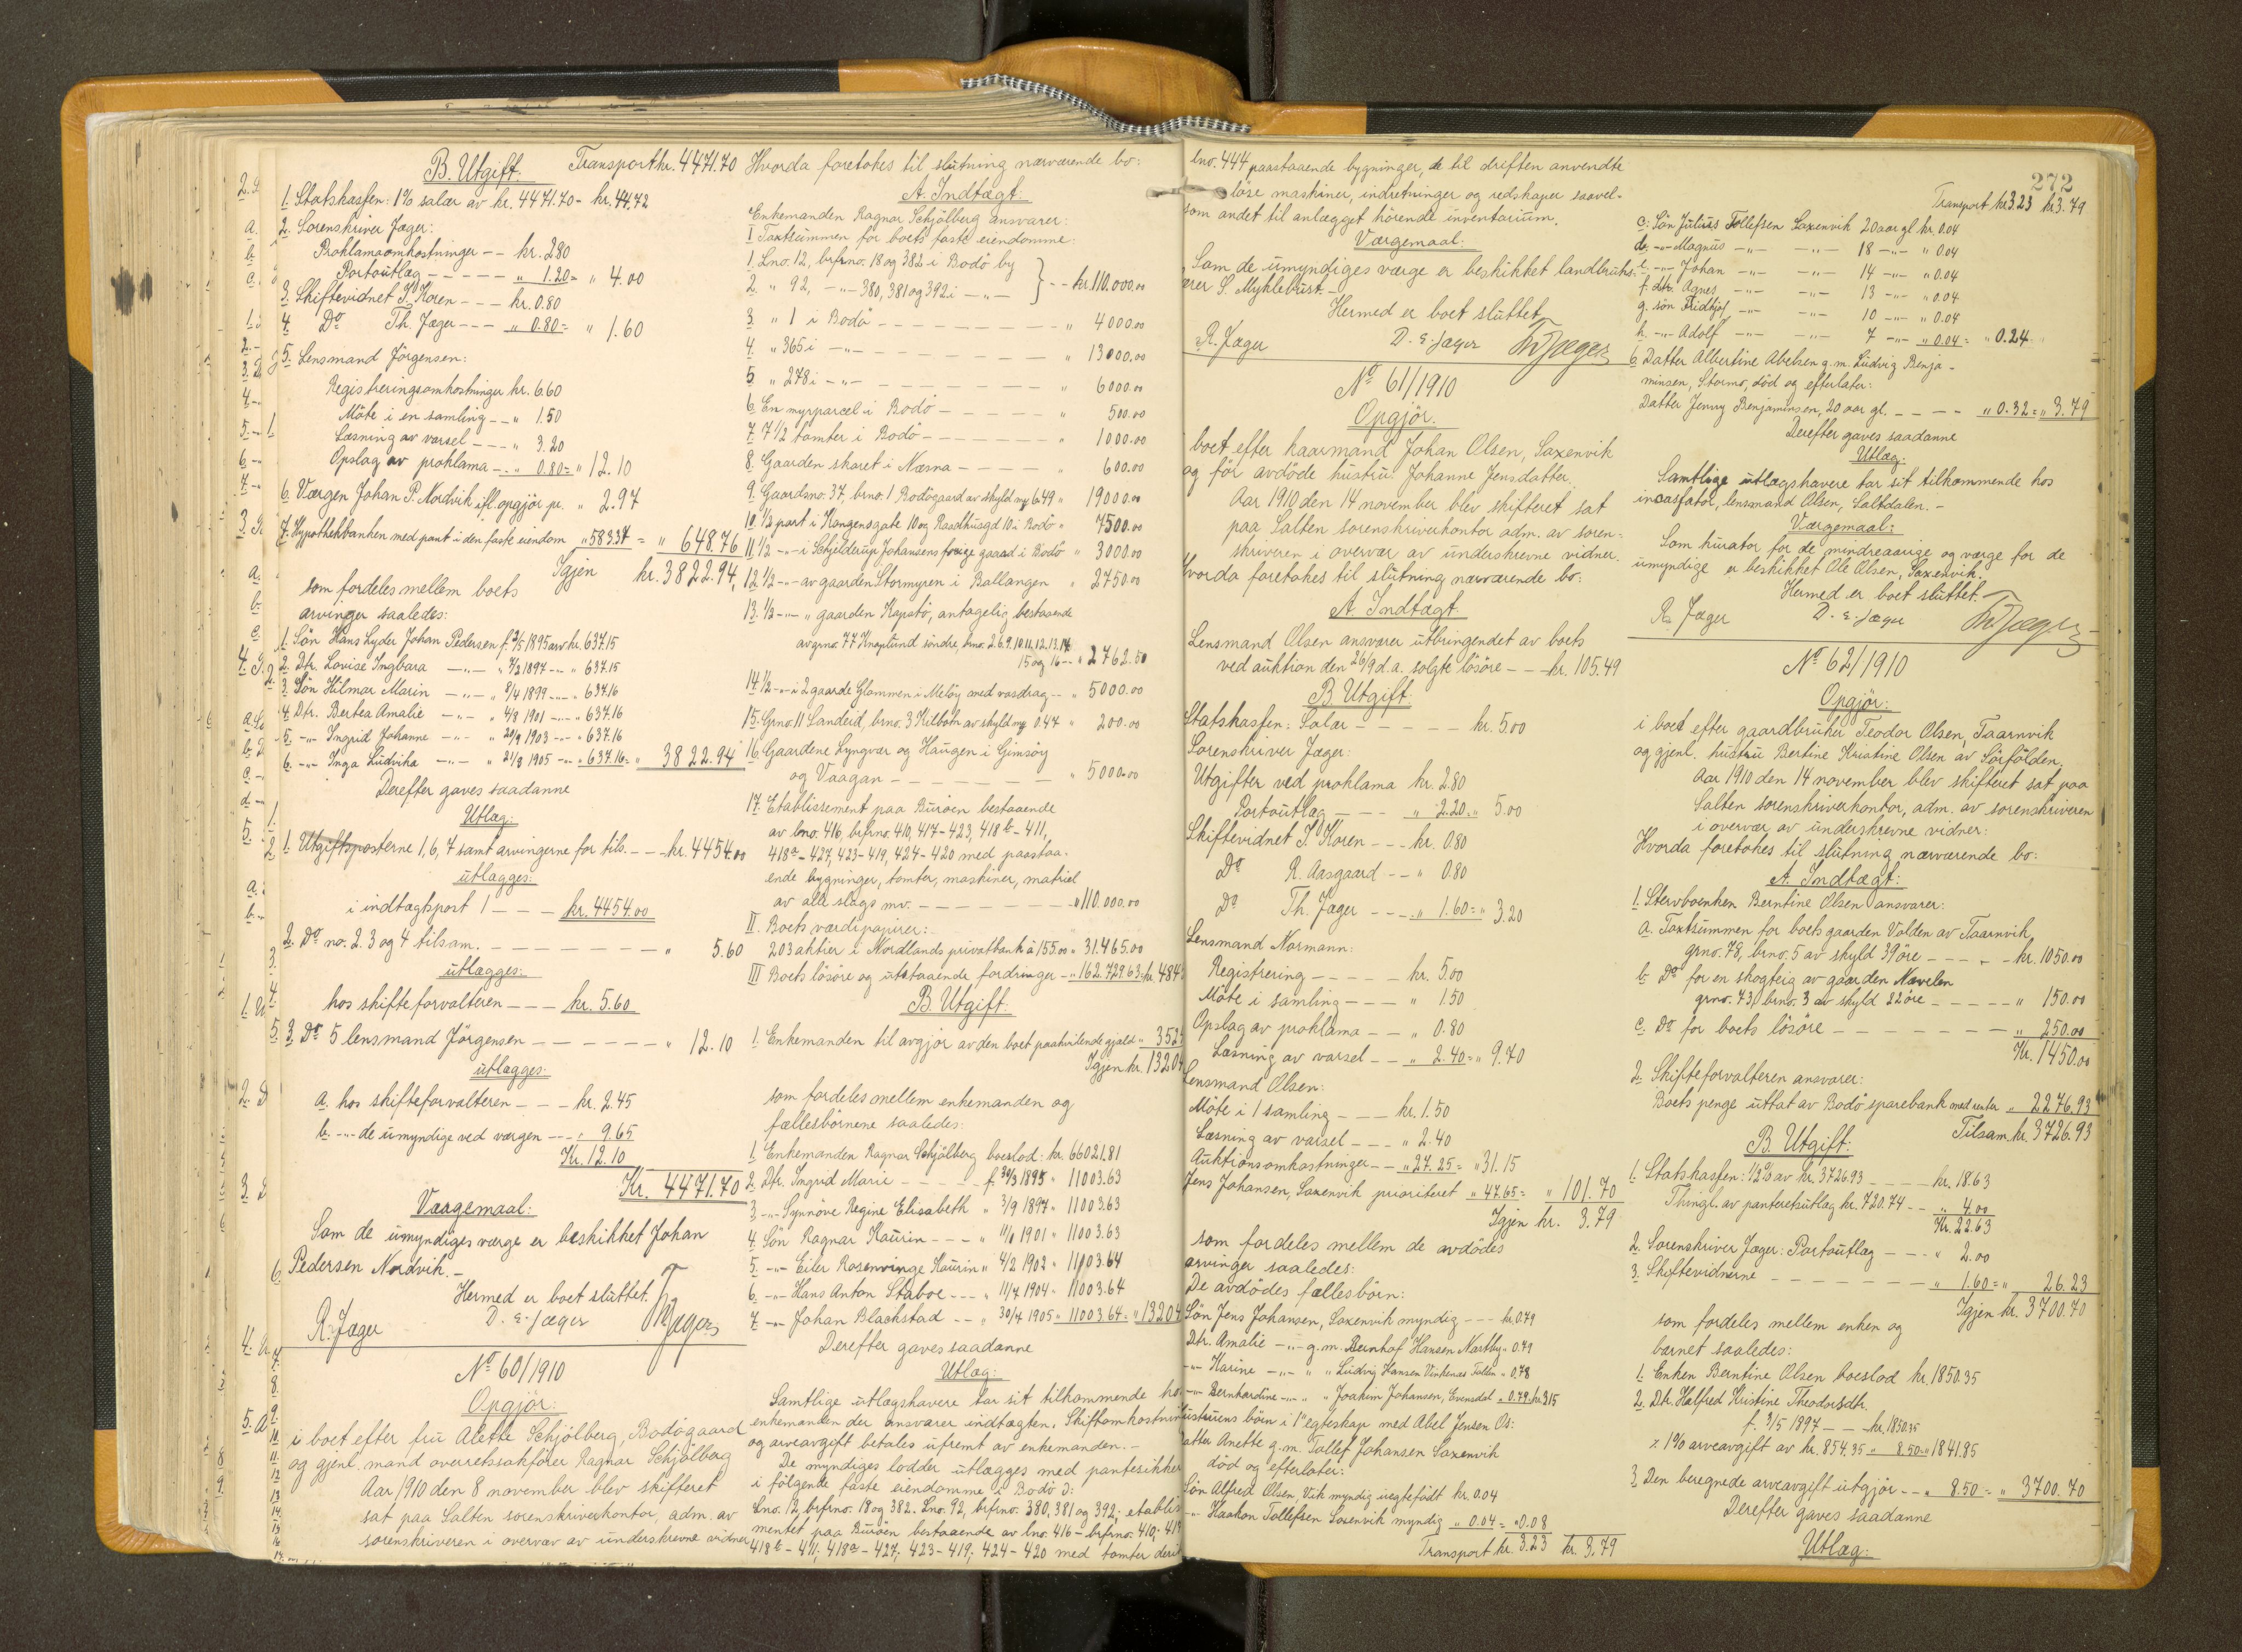 B. Utgift. Transport kr. 4471.70
1. Statskassen: 1% salær av kr. 4471.70 - kr. 44.72
2. Sorenskriver Jæger:
Proklamaomkostninger - - kr. 2.80
Portoutlæg - - - - - " 1.20 = " 4.00
3. Skiftevidnet J. Koren - - - kr. 0.80
4. Do Th. Jæger - - - " 0.80 = " 1.60
5. Lensmand Jörgensen:
Registreringsomkostninger kr. 6.60
Möte i en samling - - " 1.50
Læsning av varsel - - - " 3.20
Opslag av proklama - - " 0.80 = " 12.10
6. Værgen Johan P. Nordvik ifl. opgjör pr. " 2.97
7. Hypothekbanken med pant i den faste eiendom " 583.37 = " 648.76
Igjen kr. 3822.94,
som fordeles mellem boets
arvinger saaledes:
1. Sön Hans Lyder Johan Pedersen f. 2/5 1895 arv kr. 637.15
2. Dtr. Lovise Ingbara -"- " 7/2 1897 -"- " 637.15
3. Sön Hilmar Marin -"- " 8/4 1899 -"- " 637.16
4. Dtr. Bertea Amalie -"- " 4/8 1901 -"- " 637.16
5. -"- Ingrid Johanne -"- " 20/9 1903 -"- " 637.16
6. -"- Inga Ludvika -"- " 21/8 1905 -"- " 637.16 = " 3822.94
Derefter gaves saadanne
Utlæg:
1. Utgiftsposterne 1, 6, 7 samt arvingerne for tils. - - - kr. 4454.00
utlægges:
i indtægtspost 1 - - - kr. 4454.00
2. Do no. 2. 3 og 4 tilsam. - - - - - - - " 5.60
utlægges:
hos skifteforvalteren - - - kr. 5.60
3. Do 5 lensmand Jörgensen - - - - - - " 12.10
utlægges:
a. hos skifteforvalteren - - - kr. 2.45
b. -"- de umyndige ved værgen - - - " 9.65
Kr. 12.10
Kr. 4471.70
Værgemaal:
Som de umyndiges værge er beskikket Johan
Pedersen Nordvik. -
Hermed er boet sluttet.
R. Jæger D. E. Jæger Th Jæger
No 60/1910
Opgjör:
i boet efter fru Alette Schjölberg, Bodögaard
og gjenl. mand overretssakförer Ragnar Schjölberg
Aar 1910 den 8 november blev skifteret
sat paa Salten sorenskriverkontor, adm. av
sorenskriveren i overvær av underskrevne vidner
Hvorda foretokes til slutning nærværende bo:
A. Indtægt:
Enkemanden Ragnar Schjölberg ansvarer:
I Taxtsummen for boets faste eiendomme:
1. Lno. 12, brfrno. 18 og 382 i Bodö by
2. " 92, -"- 380, 381 og 392 i -"- } - - kr. 110.000.00
3. " 1 i Bodö - - - - - - - - - " 4000.00
4. " 365 i -"- - - - - - - - - " 13000.00
5. " 278 i -"- - - - - - - - - " 6000.00
6. En myrparcel i Bodö - - - - - " 500.00
7. 7 1/2 tomter i Bodö - - - - - - " 1000.00
8. Gaarden skaret i Næsna - - - - " 600.00
9. Gaardsno. 37, brno. 1 Bodögaard av skyld my 6.49 " 19000.00
10. 1/2 part i Kongensgate 10 og Raadhusgd 10 i Bodö " 7500.00
11. 1/2 -"- i Schjelderup Johansens forrige gaard i Bodö " 3000.00
12. 1/2 -"- av gaarden Stormyren i Ballangen " 2750.00
13. 1/2 -"- " gaarden Kopstö, antagelig bestaaende
av grno. 77 Knaplund söndre, brno. 2. 6. 9. 10. 11. 12. 13. 14
15 og 16 - - " 2762.50
14. 1/2 -"- i 2 gaarde Glommen i Melöy med vasdrag - - " 5000.00
15. Grno. 11 Sandeid, brno. 3 Kilbotn av skyld my 0.47 " 200.00
16. Gaardene Lyngvær og Haugen i Gimsöy
og Vaagan - - - - - - - " 5000.00
17. Etablissement paa Buröen bestaaende
av lno. 416, brfrno. 410, 417-423, 418b-411,
418a-427, 423-419, 424-420 med paastaa-
ende bygninger, tomter, maskiner, matriel
av alle slags mv. - - - - - - - - " 110.000.00
II. Boets værdipapirer:
203 aktier i Nordlands privatbank á 155.00 " 31.465.00
III Boets lösöre og utestaaende fordringer - " 162.729.63 = kr. 484
B. Utgift.
1. Enkemanden til avgjör av den boet paahvilende gjæld " 352
Igjen kr. 13204
som fordeles mellem enkemanden og
fællesbörnene saaledes:
1. Enkemanden Ragnar Schjölberg boeslod: kr. 66021.81
2. Dtr. Ingrid Marie - - - - - f. 30/3 1895 " 11003.63
3. -"- Synnöve Regine Elisabeth " 3/9 1897 " 11003.63
4. Sön Ragnar Kaurin - - - " 11/6 1901 " 11003.63
5. -"- Eiler Rosenvinge Kaurin " 4/2 1902 " 11003.64
6. -"- Hans Anton Staboe - - - " 11/4 1904 " 11003.64
7. -"- Johan Blackstad - - " 30/4 1905 " 11003.64 = " 13204
Derefter gaves saadanne
Utlæg:
Samtlige utlægshavere tar sit tilkommende hos
enkemanden der ansvarer indtægten. Skifteomkostnin
og arveavgift betales ufremt av enkemanden. -
De myndiges lodder utlægges med pantesikker
i fölgende faste eiendomme i Bodö ɔ:
Lno. 12, brfrno. 18 og 382. Lno. 92, brfrno. 380, 381 og 392; etablis
mentet paa Buröen bestaaende av lno. 416 - brfrno. 410; 417
418b - 411; 418a - 427; 423 - 419; 424 - 420 med tomter deri
272
lno. 444 paastaaende bygninger, de til driften anvendte
löse maskiner, indretninger og redskaper saavel-
som andet til anlægget hörende inventarium.
Værgemaal:
Som de umyndiges værge er beskikket landbruks-
ærer S. Myklebust. -
Hermed er boet sluttet
R. Jæger D. E. Jæger Th Jæger
No 61/1910
Opgjör.
i boet efter kaarmand Johan Olsen, Saxenvik
og för avdöde hustru Johanne Jensdatter.
Aar 1910 den 14 november blev skifteret sat
paa Salten sorenskriverkontor adm. av soren-
skriveren i overvær av underskrevne vidner.
Hvorda foretokes til slutning nærværende bo:
A. Indtægt.
Lensmand Olsen ansvarer utbringendet av boets
ved auktion den 26/9 d.a. solgte lösöre - - - kr. 105.49
B. Utgift:
Statskassen: Salær - - - - - kr. 5.00
Sorenskriver Jæger:
Utgifter ved proklama kr. 2.80
Portoutlæg - - - " 2.20 = " 5.00
Skiftevidnet J. Koren - - - kr. 0.80
Do R. Aasgaard - - " 0.80
Do Th. Jæger - - - " 1.60 = " 3.20
Lensmand Normann:
Registrering - - - - - kr. 5.00
Möte i samling - - - - " 1.50
Opslag av proklama - - " 0.80
Læsning av varsel - - " 2.40 = " 9.70
Lensmand Olsen:
Möte i 1 samling - - - kr. 1.50
Læsning av varsel - - - " 2.40
Auktionsomkostninger - - " 27.25 = " 31.15
Jens Johansen, Saxenvik prioritetet " 47.65 = " 101.70
Igjen kr. 3.79
som fordeles mellem de avdödes
arvinger saaledes:
De avdödes fællesbörn:
Sön Jens Johansen, Saxenvik myndig - - - kr. 0.79
Dtr. Amalie -"- g.m. Bernhof Hansen Nastby " 0.79
-"- Karine -"- " " Ludvig Hansen Vinkenes Folden " 0.78
-"- Bernhardine -"- " " Joakim Johansen, Evensdal " 0.79 kr. 3.15
Hustruens börn i 1ste egteskap med Abel Jensen Os:
Datter Anette g.m. Tollef Johansen Saxenvik
död og efterlater:
Sön Alfred Olsen, Vik myndig uegtefödt kr. 0.04
-"- Haakon Tollefsen Saxenvik myndig " 0.04 = " 0.08
Transport kr. 3.23 kr. 3.79
Transport kr. 3.23 kr. 3.79
c. Sön Julius Tollefsen Saxenvik 20 aar gl. kr. 0.04
d. -"- Magnus -"- -"- 18 -"- " 0.04
e. -"- Johan -"- -"- 14 -"- " 0.04
f. dtr. Agnes -"- -"- 13 -"- " 0.04
g. sön Fridtjof -"- -"- 10 -"- " 0.04
h. -"- Adolf -"- -"- 7 -"- " 0.04 = " 0.24
6. Datter Albertine Abelsen g.m. Ludvig Benja-
minsen, Stormo, död og efterlater:
Datter Jenny Benjaminsen, 20 aar gl. - - - - " 0.32 = " 3.79
Derefter gaves saadanne
Utlæg:
Samtlige utlægshavere tar sit tilkommende hos
incassator, lensmand Olsen, Saltdalen. -
Værgemaal:
Som kurator for de mindreaarige og værge for de
umyndige er beskikket Ole Olsen, Saxenvik.
Hermed er boet sluttet.
R. Jæger D. E. Jæger Th Jæger
No 62/1910
Opgjör:
i boet efter gaardbruker Teodor Olsen, Taarnvik
og gjenl. hustru Bertine Kristine Olsen av Sörfolden.
Aar 1910 den 14 november blev skifteret sat paa
Salten sorenskriverkontor, adm. av sorenskriveren
i overvær av underskrevne vidner:
Hvorda foretokes til slutning nærværende bo:
A. Indtægt:
1. Stervboenken Berntine Olsen ansvarer:
a. Taxtsummen for boets gaarden Volden av Taarnvik
grno. 78, brno. 5 av skyld 39 öre - - - - - kr. 1050.00
b. Do for en skogteig av gaarden Nævelen
grno. 73, brno. 3 av skyld 22 öre - - - - - " 150.00
c. Do for boets lösöre - - - - - - - - " 250.00
Kr. 1450.00
2. Skifteforvalteren ansvarer:
Boets penge uttat av Bodö sparebank med renter " 2276.93
Tilsam. kr. 3726.93
B. Utgift:
1. Statskassen: 1/2% av kr. 3726.93 - - - - kr. 18.63
Thingl. av panteretsutlæg kr. 720.74 - - " 4.00
Kr. 22.63
2. Sorenskriver Jæger: Portoutlæg - - - " 2.00
3. Skiftevidnerne - - - - - - - - " 1.60 = " 26.23
Igjen kr. 3700.70
som fordeles mellem enken og
barnet saaledes:
1. Enken Berntine Olsen boeslod kr. 1850.35
2. Dtr. Halfred Kristine Theodorsdtr.
f. 3/5 1897 - - - kr. 1850.35
÷ 1% arveavgift av kr. 854.35 " 8.50 = " 1841.85
3. Den beregnede arveavgift utgjör - - " 8.50 = " 3700.70
Derefter gaves saadanne
Utlæg: